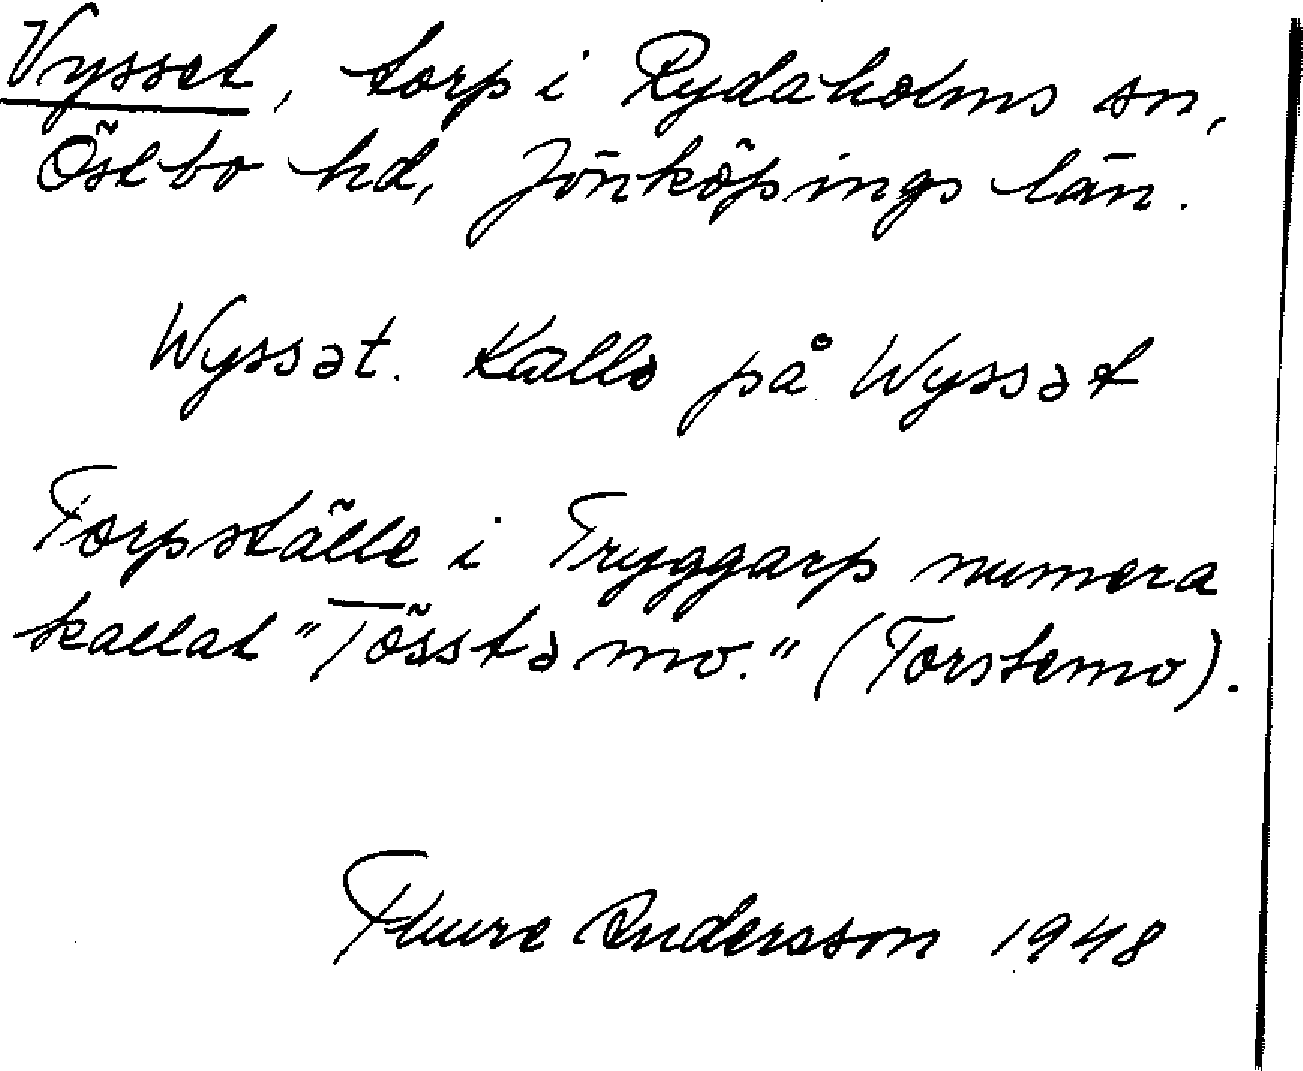 Vysset, torp i Rydaholms sn,
Östbo hd, Jönköpings län.
Wyssət. Kallə på Wyssət
Torpställe i Tryggarp numera
kallat "Tösstə mo." (Torstemo).
Thure Andersson 1948